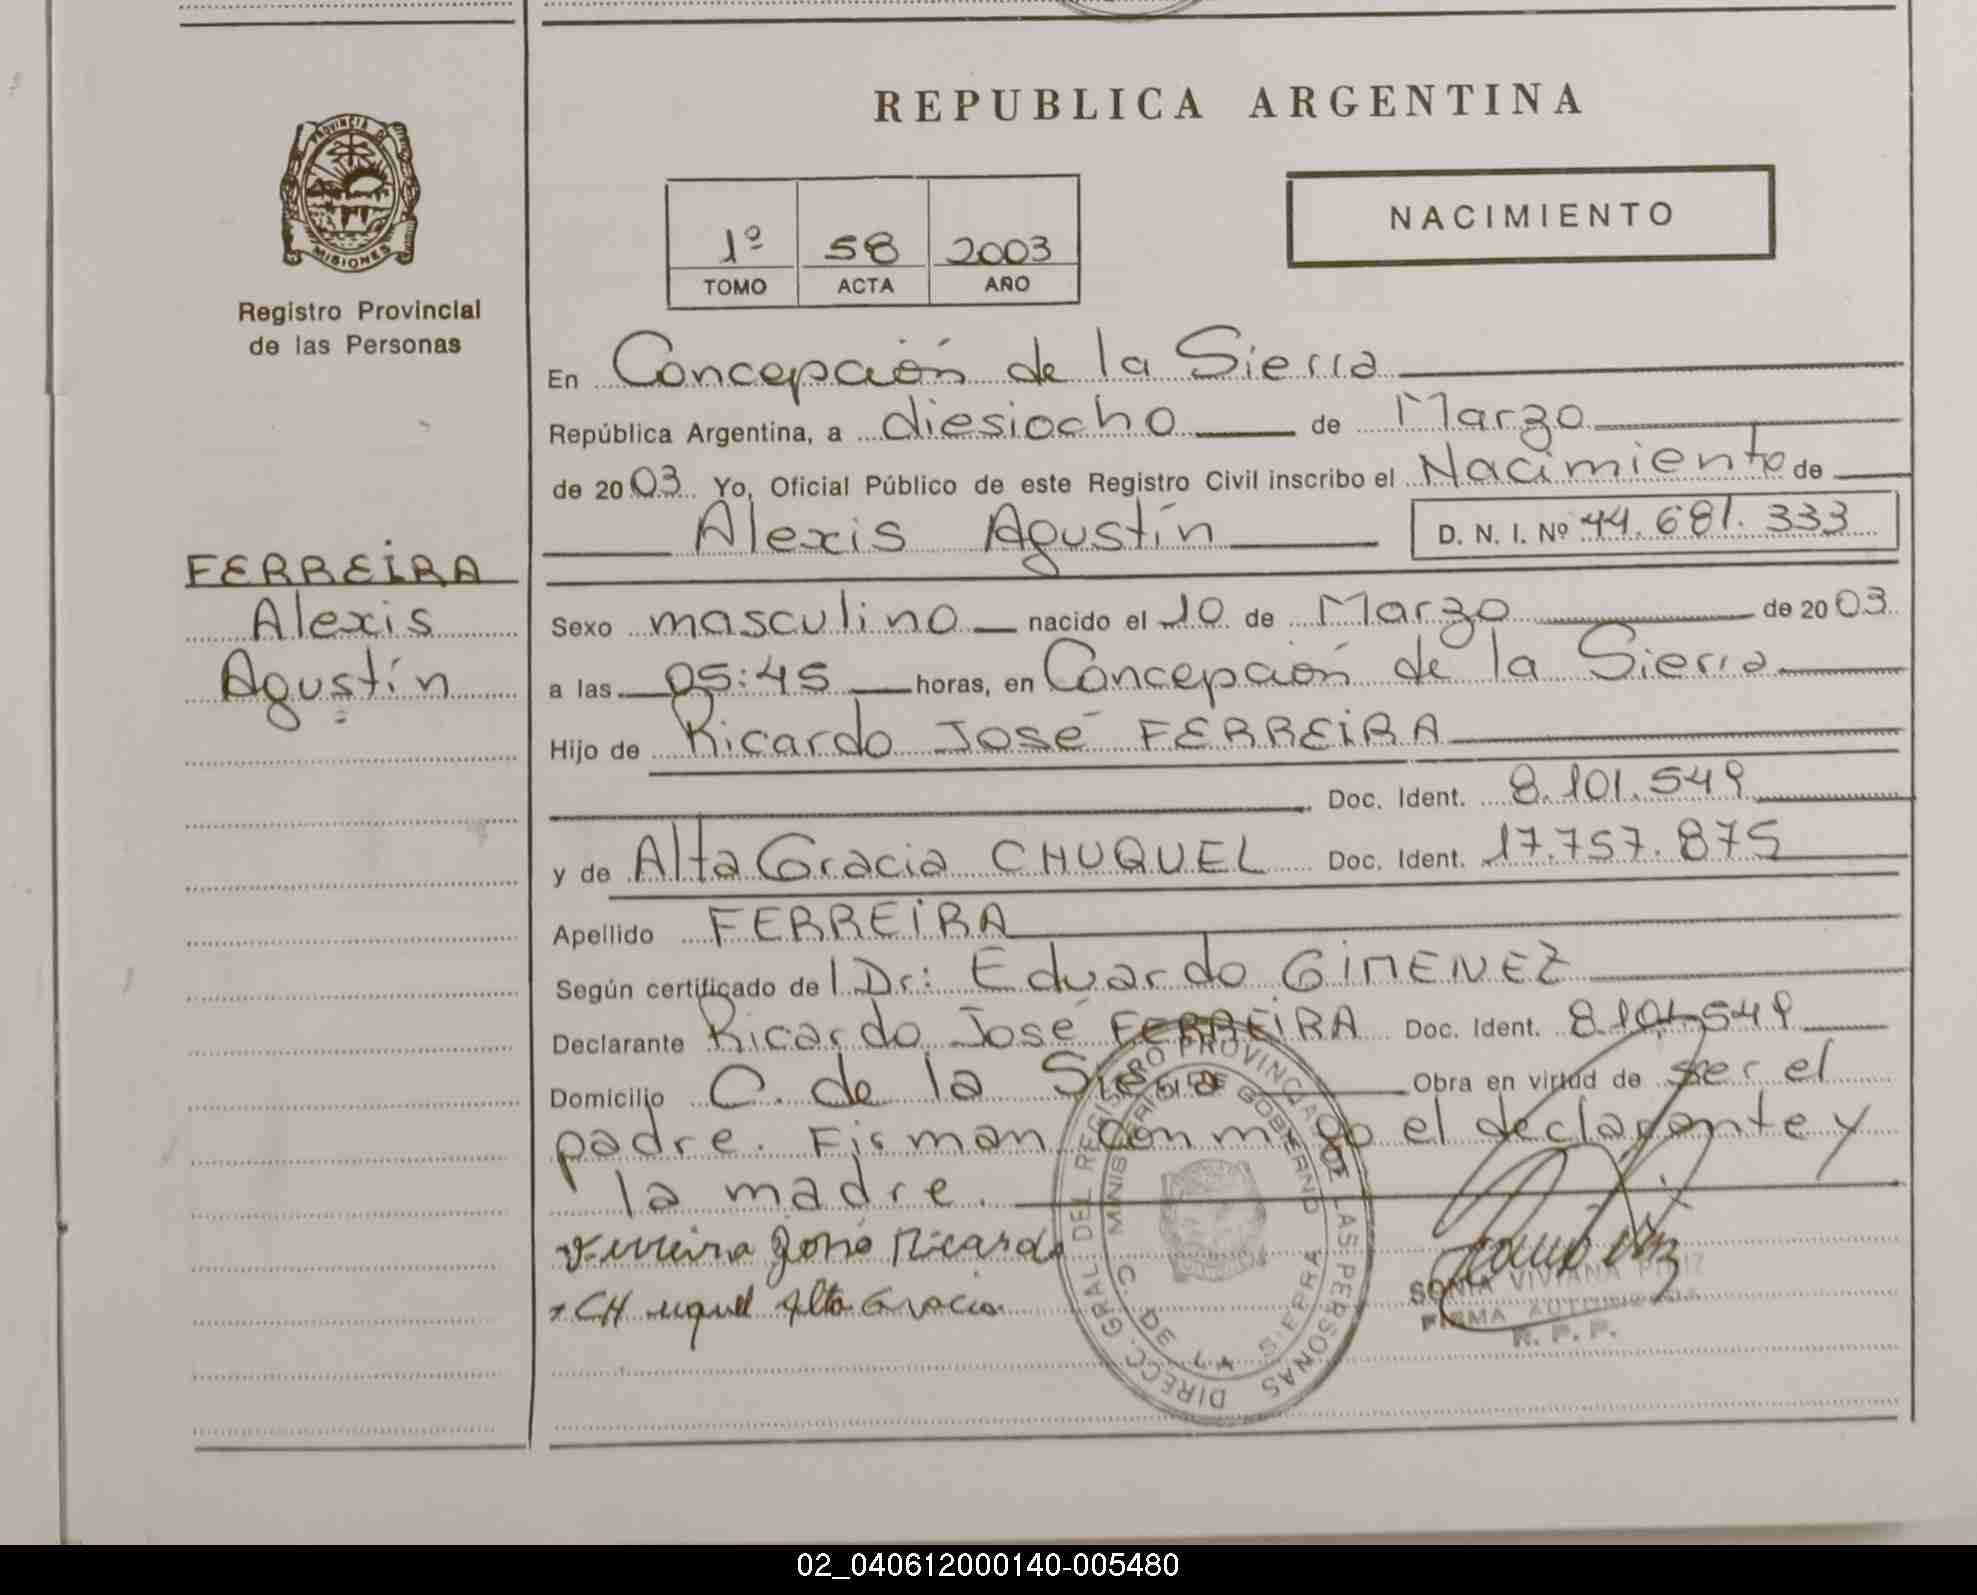 REPUBLICA ARGENTINA
PROVINCIA DE
MISIONES
Registro Provincial
de las Personas
1º 58 2003
TOMO ACTA AÑO
NACIMIENTO
En Concepción de la Sierra
República Argentina, a diesiocho de Marzo
de 2003 Yo, Oficial Público de este Registro Civil inscribo el Nacimiento de
Alexis Agustín D. N. I. Nº 44.681.333
FERREIRA
Alexis
Agustín
Sexo masculino nacido el 10 de Marzo de 2003
a las 05:45 horas, en Concepción de la Sierra
Hijo de Ricardo José FERREIRA
Doc. Ident. 8.101.549
y de Alta Gracia CHUQUEL Doc. Ident. 17.757.875
Apellido FERREIRA
Según certificado de l Dr: Eduardo GIMENEZ
Declarante Ricardo José FERREIRA Doc. Ident. 8.101.549
Domicilio C. de la Sierra Obra en virtud de ser el
padre. Firman conmigo el declarante y
la madre.
Ferreira José Ricardo
CHuquel Alta Gracia
DIRECC. GRAL DEL REGISTRO PROVINCIAL DE LAS PERSONAS
MINISTERIO DE GOBIERNO
C. DE LA SIERRA
SONIA VIVIANA
FIRMA AUTORIZADA
R. P. P.
02_040612000140-005480